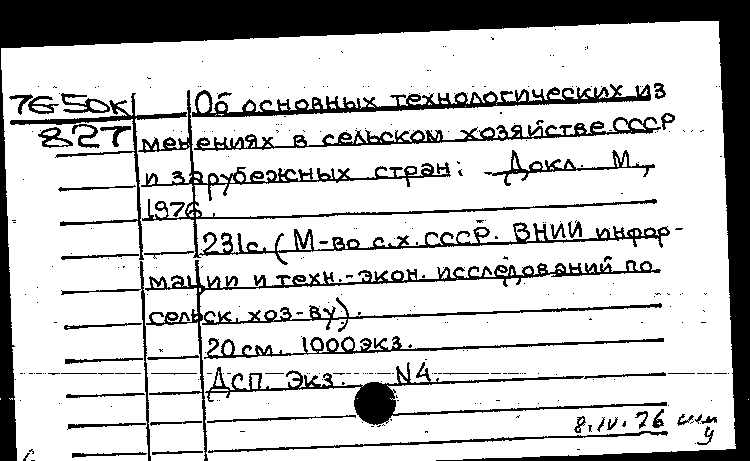 76-50к Об основных технологических из
827 менениях в сельском хозяйстве СССР
и зарубежных стран: Докл. М.,
1976.
231с. (М-во с.х. СССР. ВНИИ инфор-
мации и техн.-экон. исследований по
сельск. хоз-ву).
20см. 1000экз.
ДСП. Экз. N4.
8.IV.76